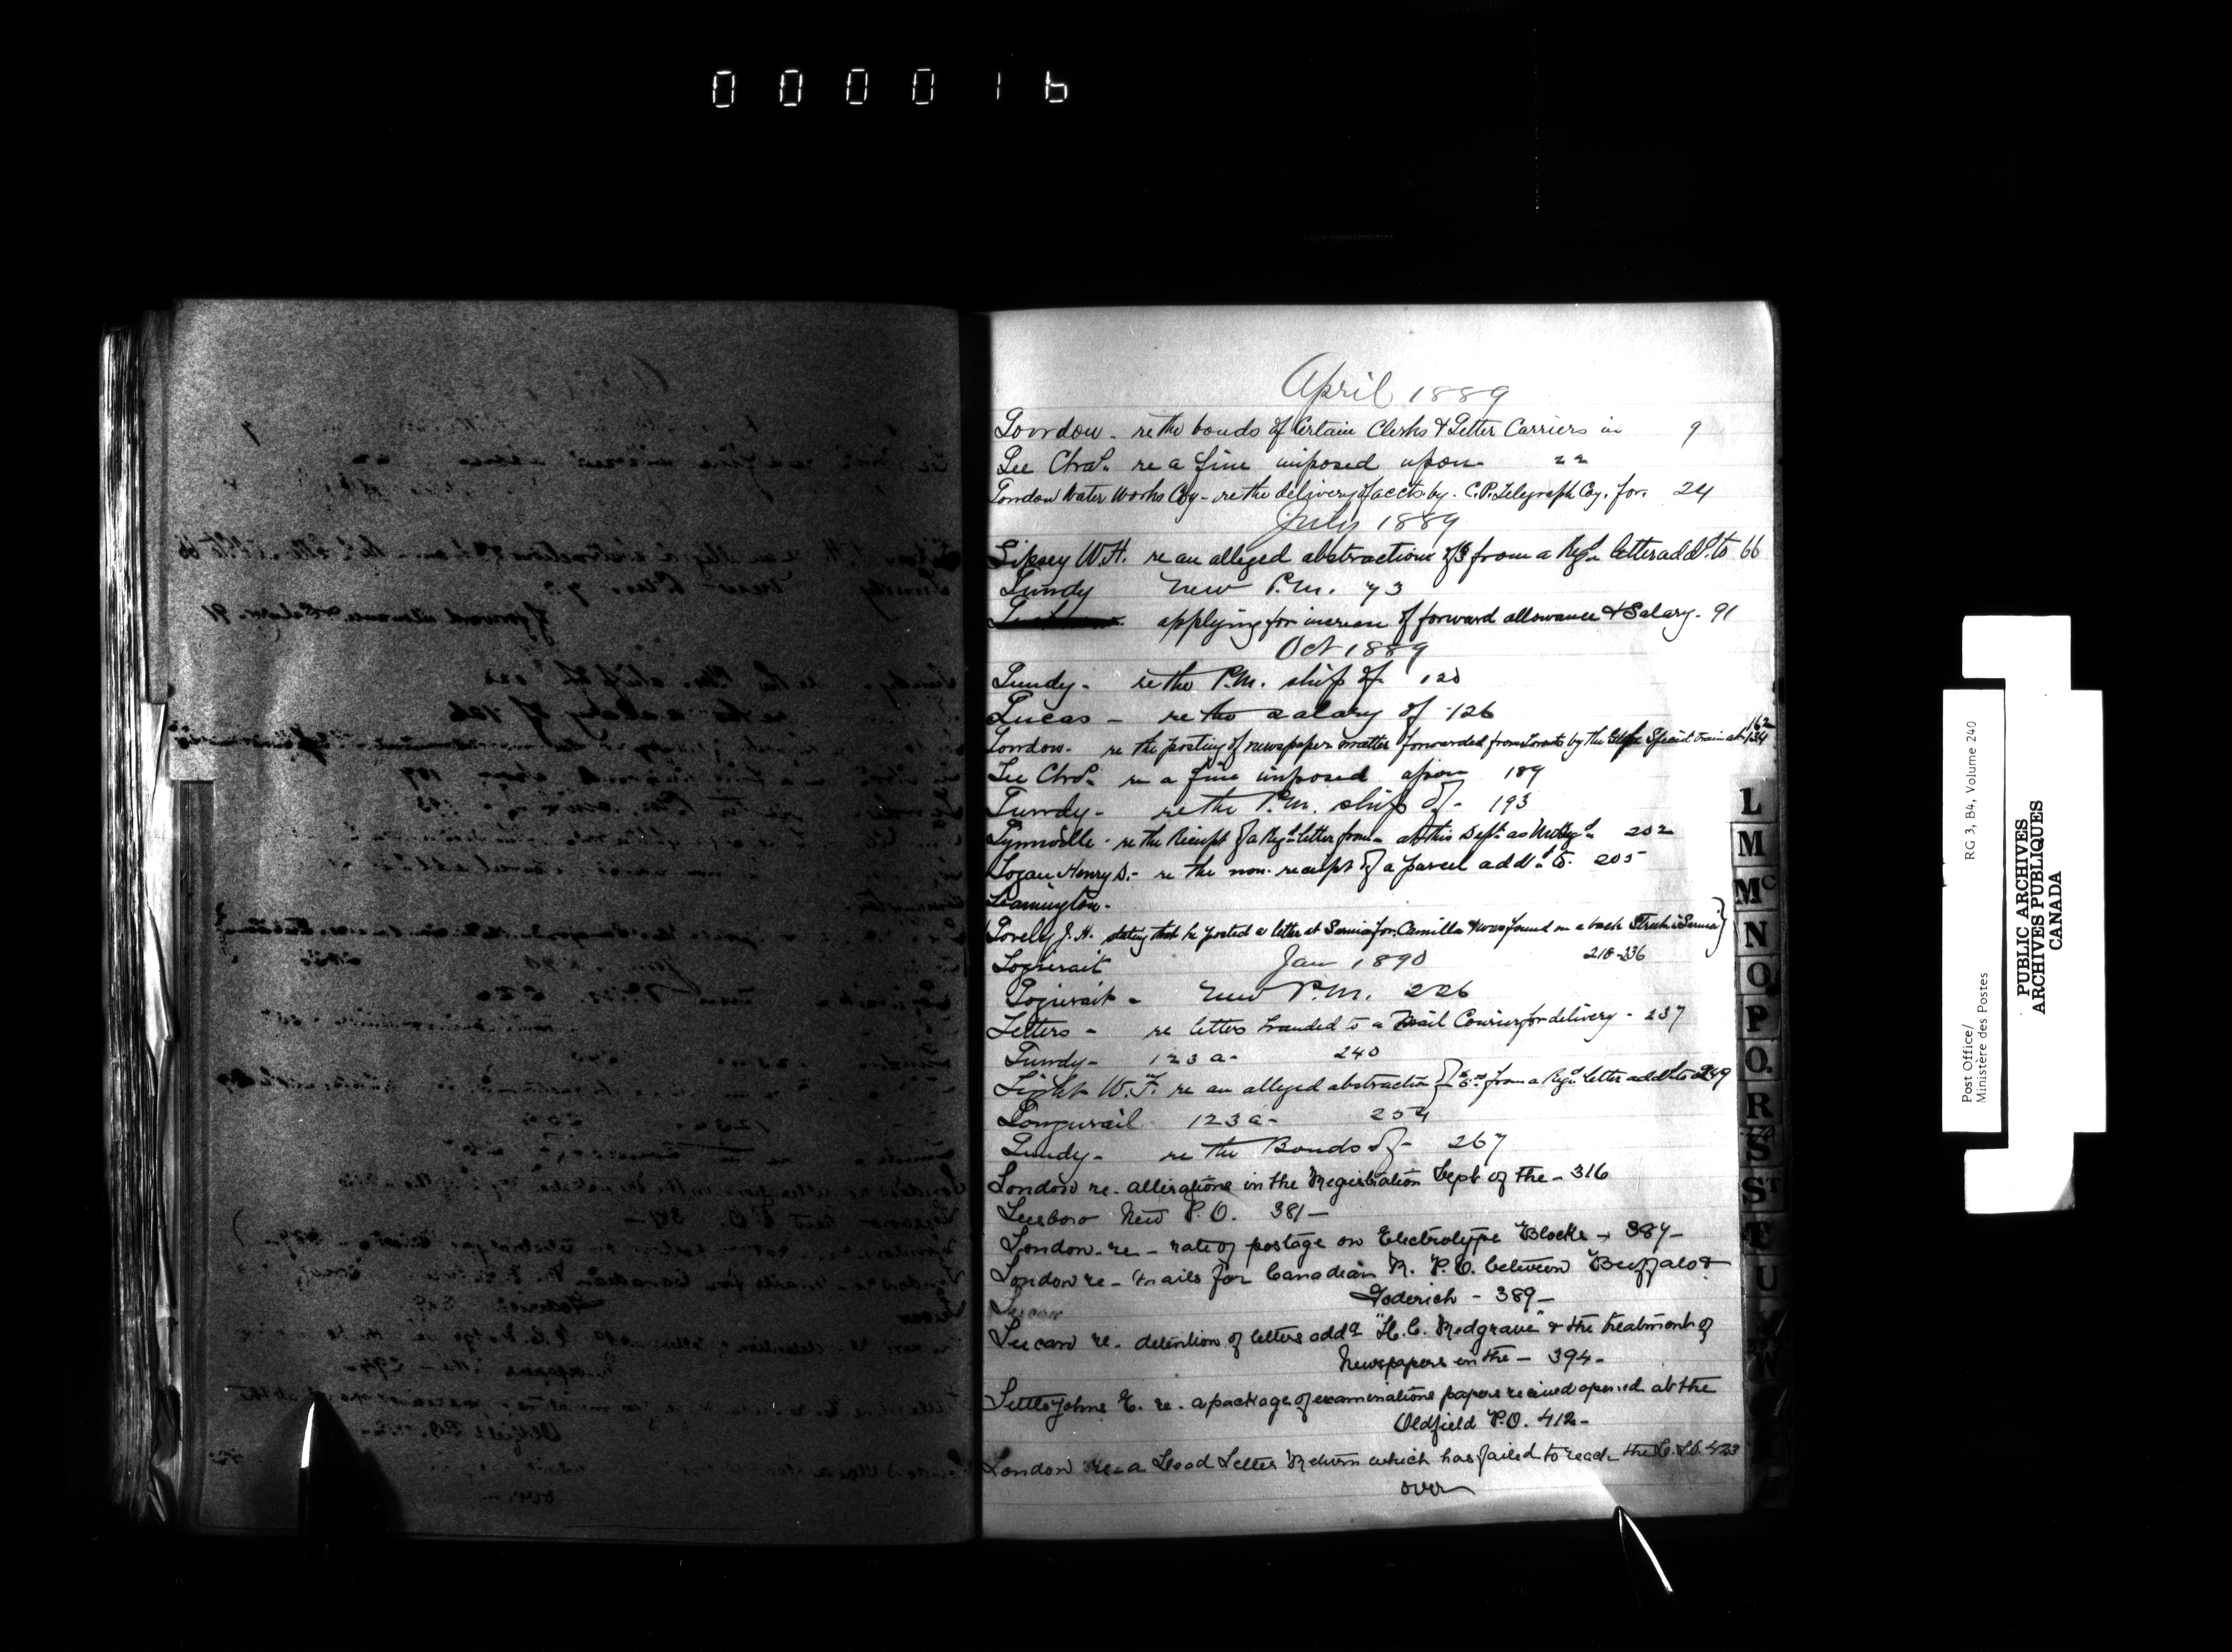 000016
April 1889
London - re the bonds of Certain Clerks & Letter Carriers in 9
Lee Chas. re a fine imposed upon 22
London Water Works Coy - re the delivery of accts. by C.P. Telegraph Coy. for. 24
July 1889
Lipsey W.H. re an alleged abstraction of $ from a Regd. letter addd. to 66
Lundy New P.M. 73
applying for increase of forward allowance & Salary - 91
Oct 1889
Lundy - re the P.M. ship of 120
Lucas - re the salary of 126
London - re the posting of newspaper matter forwarded from Toronto by the Special train at 162 134
Lee Chas. re a fine imposed upon 189
Lundy - re the P.M. ship of - 193
Lynnville - re the Receipt of a Regd. letter from - at this Dept. as 202
Logan Henry S. - re the non-receipt of a parcel addd. to. 205
Leamington -
Lovely J.H. stating that he posted a letter at Sarnia for Camilla & was found on a back Street in Sarnia
218-236
Logierait Jan 1890
Logierait - New P.M. 226
Letters - re letters handed to a Mail Courier for delivery - 237
Lundy - 123 a - 240
Light W. F. re an alleged abstraction of from a Regd. letter addd. to 249
123 a - 254
Lundy - re the Bonds of - 267
London re - alterations in the Registration Dept of the - 316
Leesboro New P.O. 381 -
London - re - rate of postage on Electrotype Blocks - 387 -
London re - mails for Canadian R. P.O. between Buffalo &
Goderich - 389 -
Lucan
Lucan re - detention of letters addd "H. C. Redgrave" & the treatment of
Newspapers in the - 394 -
Littlejohns E. re - a package of examinations papers received opened at the
Oldfield P.O. 412 -
London re - a Dead Letter Return which has failed to reach the D.L.O. 423
over
L
M
Mc
N
O
P
Q.
R
S
ST
T
U
W
Post Office/
Ministère des Postes
RG 3, B4, Volume 240
PUBLIC ARCHIVES
ARCHIVES PUBLIQUES
CANADA